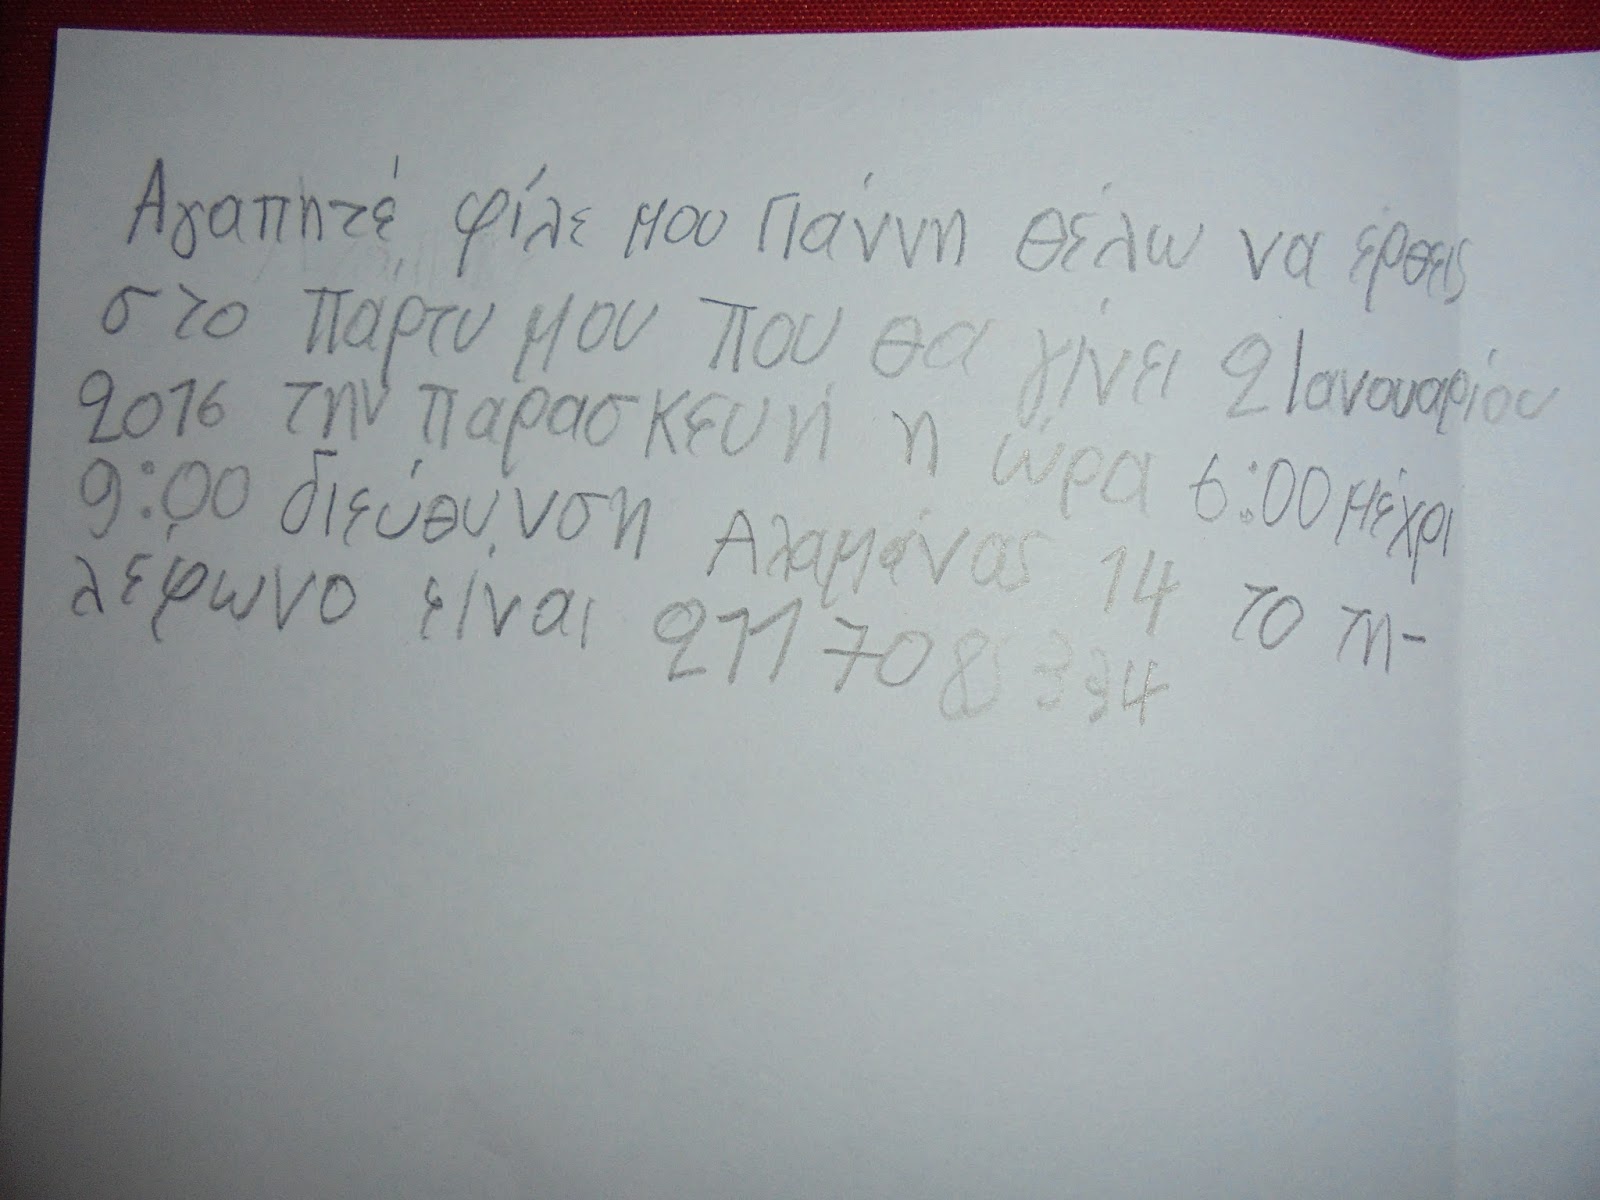 Αγαπητέ φίλε μου Γιάννη θέλω να έρθεις
στο πάρτυ μου που θα γίνει 2 Ιανουαρίου
2016 την παρασκευή η ώρα 6:00 μέχρι
9:00 διεύθυνση Αλαμάνας 14 το τη-
λέφωνο είναι 211 708 334